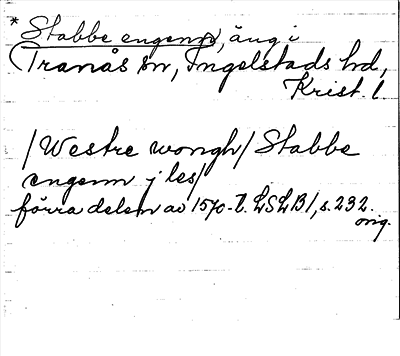 * Stabbe engenn, äng i
(Tranås sn, Ingelstads hd,
Krist. l.
/Westre wongh/ Stabbe
engenn j les/
förra delen av 1570-t. LSLB1, s. 232.
orig.